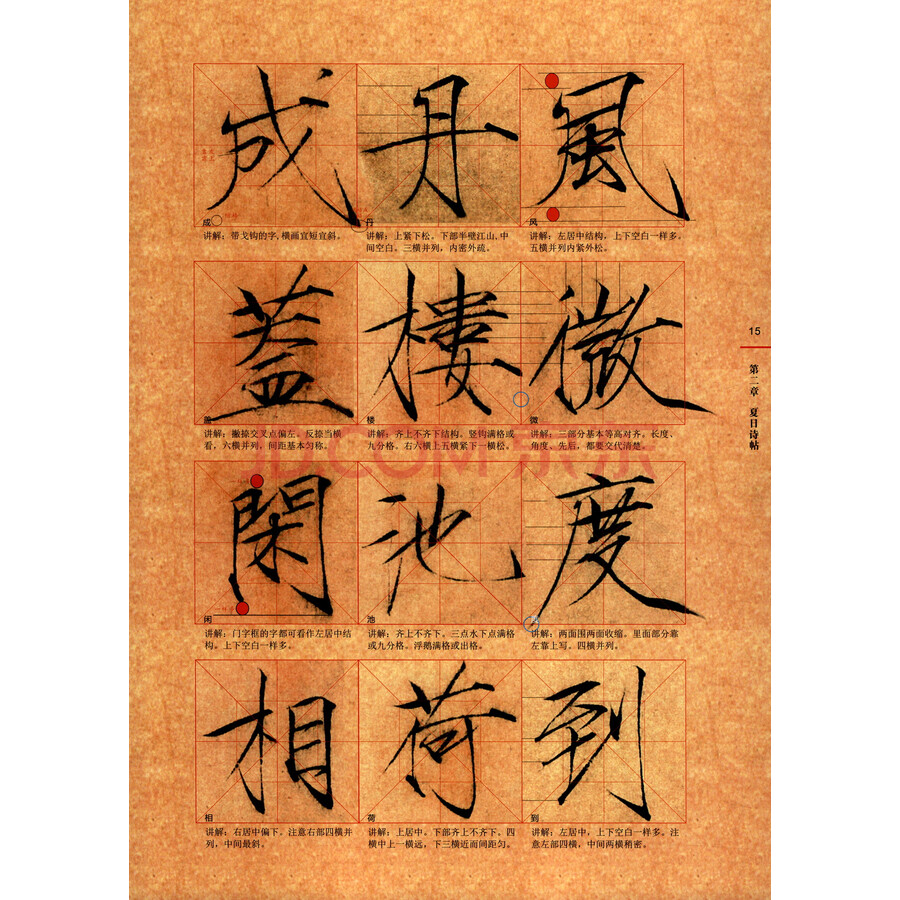 成 丹 風
成 丹 风
讲解：带戈钩的字，横画宜短宜斜。
讲解：上紧下松。下部半壁江山，中
间空白。三横并列，内密外疏。
讲解：左居中结构，上下空白一样多。
五横并列内紧外松。
蓋 樓 微
盖 楼 微
讲解：撇捺交叉点偏左。反捺当横
看，六横并列，间距基本匀称。
讲解：齐上不齐下结构。竖钩满格或
九分格。右六横上五横紧下一横松。
讲解：三部分基本等高对齐。长度、
角度、先后，都要交代清楚。
閑 池 度
闲 池
讲解：门字框的字都可看作左居中结
构。上下空白一样多。
讲解：齐上不齐下。三点水下点满格
或九分格。浮鹅满格或出格。
讲解：两面围两面收缩。里面部分靠
左靠上写。四横并列。
相 荷 到
相 荷 到
讲解：右居中偏下。注意右部四横并
列，中间最斜。
讲解：上居中。下部齐上不齐下。四
横中上一横远，下三横近而间距匀。
讲解：左居中，上下空白一样多。注
意左部四横，中间两横稍密。
15
第二章 夏日诗帖